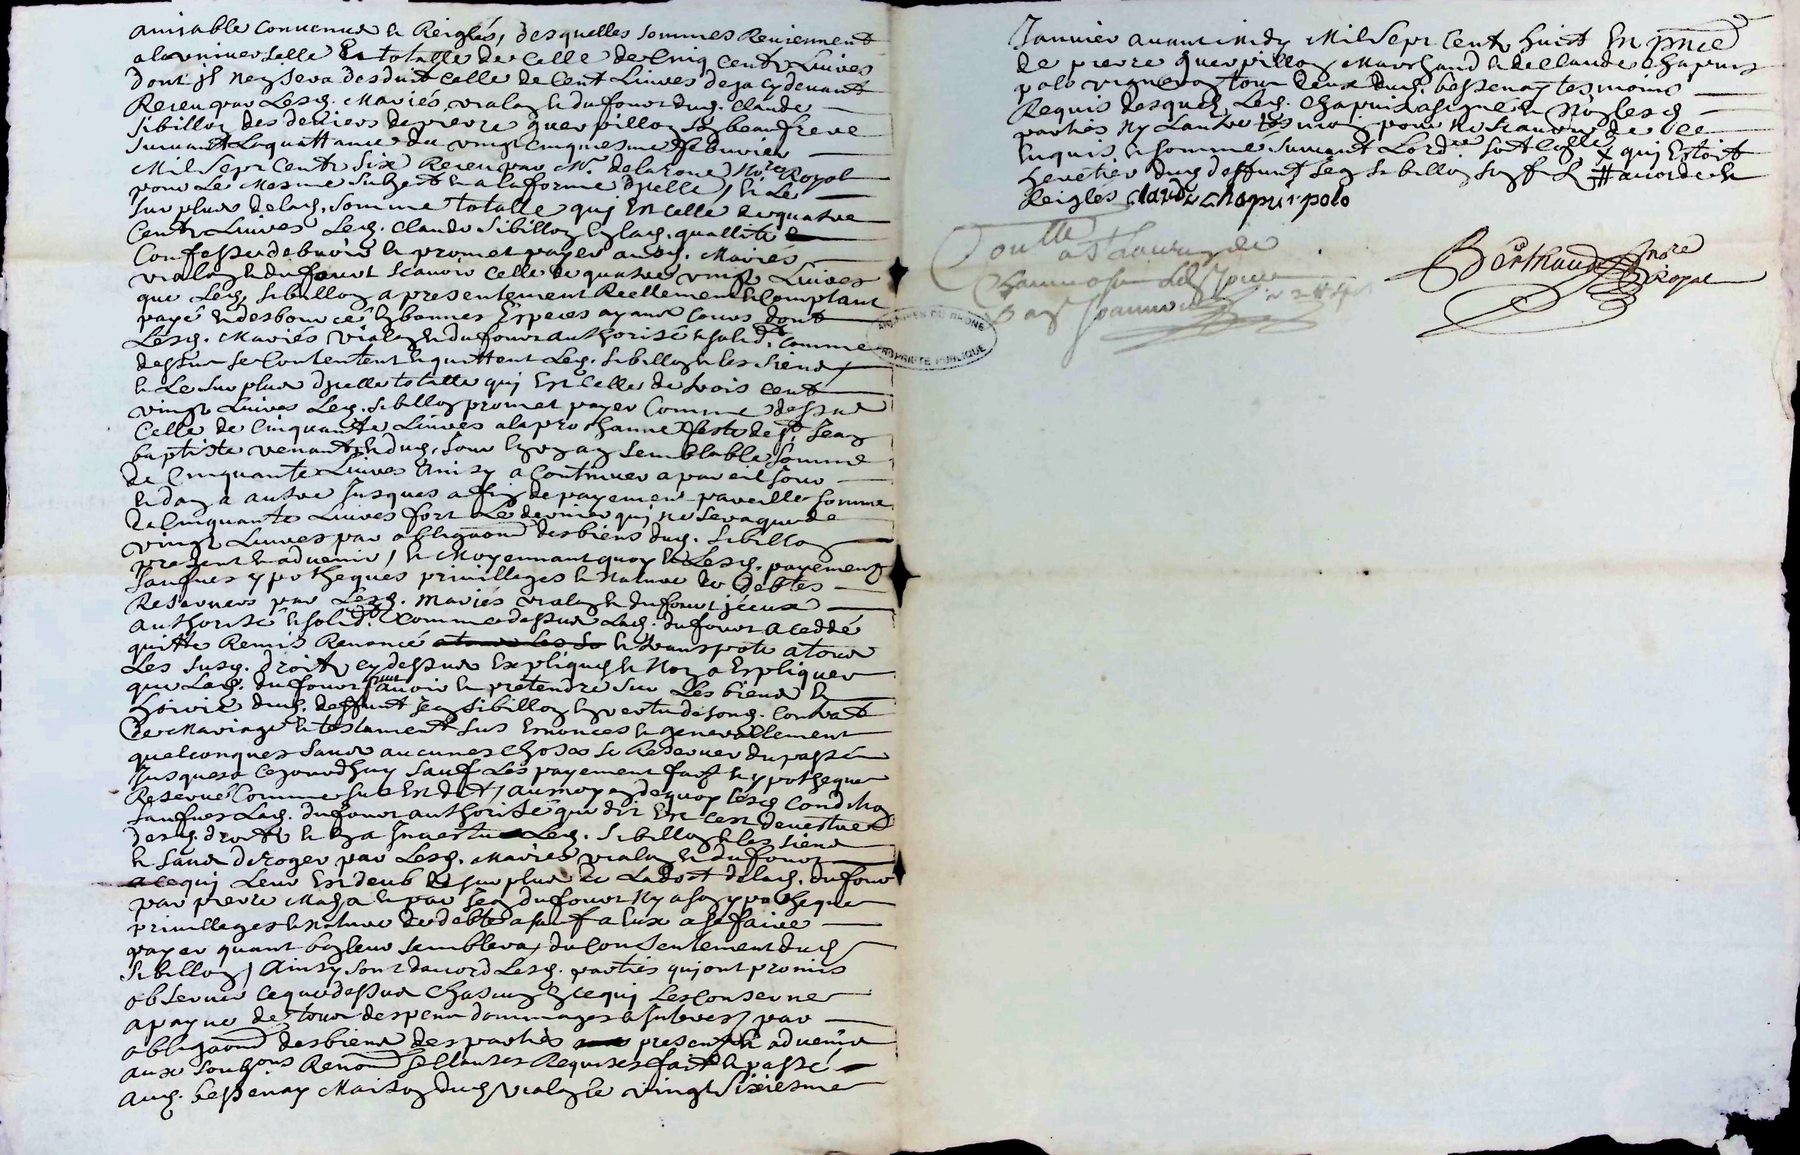 amiable convenue & Reiglés, desquelles sommes Reviennent
a la universelle & totalle de celle de Cinq Cents Livres
dont Jl ney sera desduit celle de Cent Livres desja cy devant
Receu par Lesd. Mariés vialon & dufour dud. Claude
Sibillon des deniers de pierre querpillon son beaufrere
suivant La quittance du vingt cinquiesme febvrier
Mil Sept Cents Six Receu par Me. delaroue No.re Royal
pour Le Mesme subject & a la forme dycelle, & Le
surplus de lad. somme totalle quj Est celle de quatre
Cents Livres Led. Claude Sibillon En lad. quallité
Confesse debvoir & promet payer ausd. Mariés
vialon & dufour scavoir celle de quatre vingt Livres
que Led. Sibillon a presentement Reellement & Comptant
payé & desboursé En bonnes Especes ayant Cours dont
Lesd. Mariés vialon & dufour authorisé & solid.t comme
dessus se Contentent & quittent Led. Sibillon & les siens
& Le surplus dycelle totalle quj Est celle de trois cent
vingt Livres Led. Sibillon promet payer Comme dessus
Celle de Cinquante Livres a la prochaine feste de St. Jean
baptiste venant & dud. Jour En un an semblable somme
de Cinquante Livres Ainsy a Continuer a pareil Jour
& dan a autre Jusques a fin de payement pareille somme
de Cinquante Livres fort Le dernier quj ne sera que de
vingt Livres par obligaon des biens dud. Sibillon
present & advenir, & Moyennant quoy & Lesd. payements
Jausques ypotheques privillages & Nature de debtes
Reservees par Lesd. Mariés vialon & dufour jceux
authorisé & solid.t Comme dessus Lad. dufour a ceddé
quitte Remis Renoncé & transporte a tous
Les susd. droits cy dessus Expliqués & Non a Expliquer
que Lad. dufour peut avoir & pretendre sur Les biens &
hoirie dud. deffunt Jean Sibillon En vertu de sond. Contrat
de Mariage & testament sus Ennonces & generallement
quelconques sans aucunes choses se Reserver du passé
Jusques a cejourdhuy sauf Les payement fait & ypotheque
Reservé Comme sus Est dit, au moyen de quoy lesd Condition
saufves Lad. dufour authorisé que dit Est cest devestue
desd. droits & En a Jnvestu Led. Sibillon & les siens
& sans deroger par Lesd. Mariés vialon & dufour
a ce quj Leur Est deub de surplus de La dost de lad. dufour
par pierre Maza & par Jean dufour Ny a son ypotheque
privillages & nature de debtes sauf a Eux a se faire
payer quant bon leur semblera, du Consentement dud
Sibillon, Ainsy sont daccord Lesd. parties quj ont promis
observer ce que dessus Chascun En ce quj Les conserne
a payne de tous despens dommages & Jnterests, par
obligaon des biens des parties present & advenir
aux soubzons Renon & clauses Requises fait & passé
aud. bessenay Maison dud vialon le vingt sixiesme
Janvier avant midy Mil Sept Cents huict En pnce
de pierre querpillon Marchand & de Claude chapuis
polo vigneron tous deux dud. bessenay tesmoins
Requis desquels Led. chapuis a signe & Non lesd
parties Ny Lautre tesmoin pour ne scavoir de ce
Enquis & somme suivant Lord.ce X quj Estoit
heretier dud deffunt Jean Sibillon son f # accorde &
Reiglés claude chapuis polo
Berthaud no.re
Royal
ARCHIVES DU RHÔNE
PROPRIÉTÉ PUBLIQUE